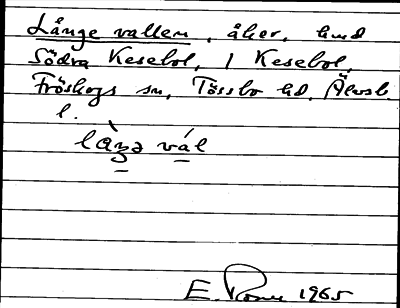 Långe vallen, åker, hmd
Södra Kesebol, 1 Kesebol,
Fröskogs sn, Tössbo hd, Älvsb.
l.
làŋə vál
E. 1965